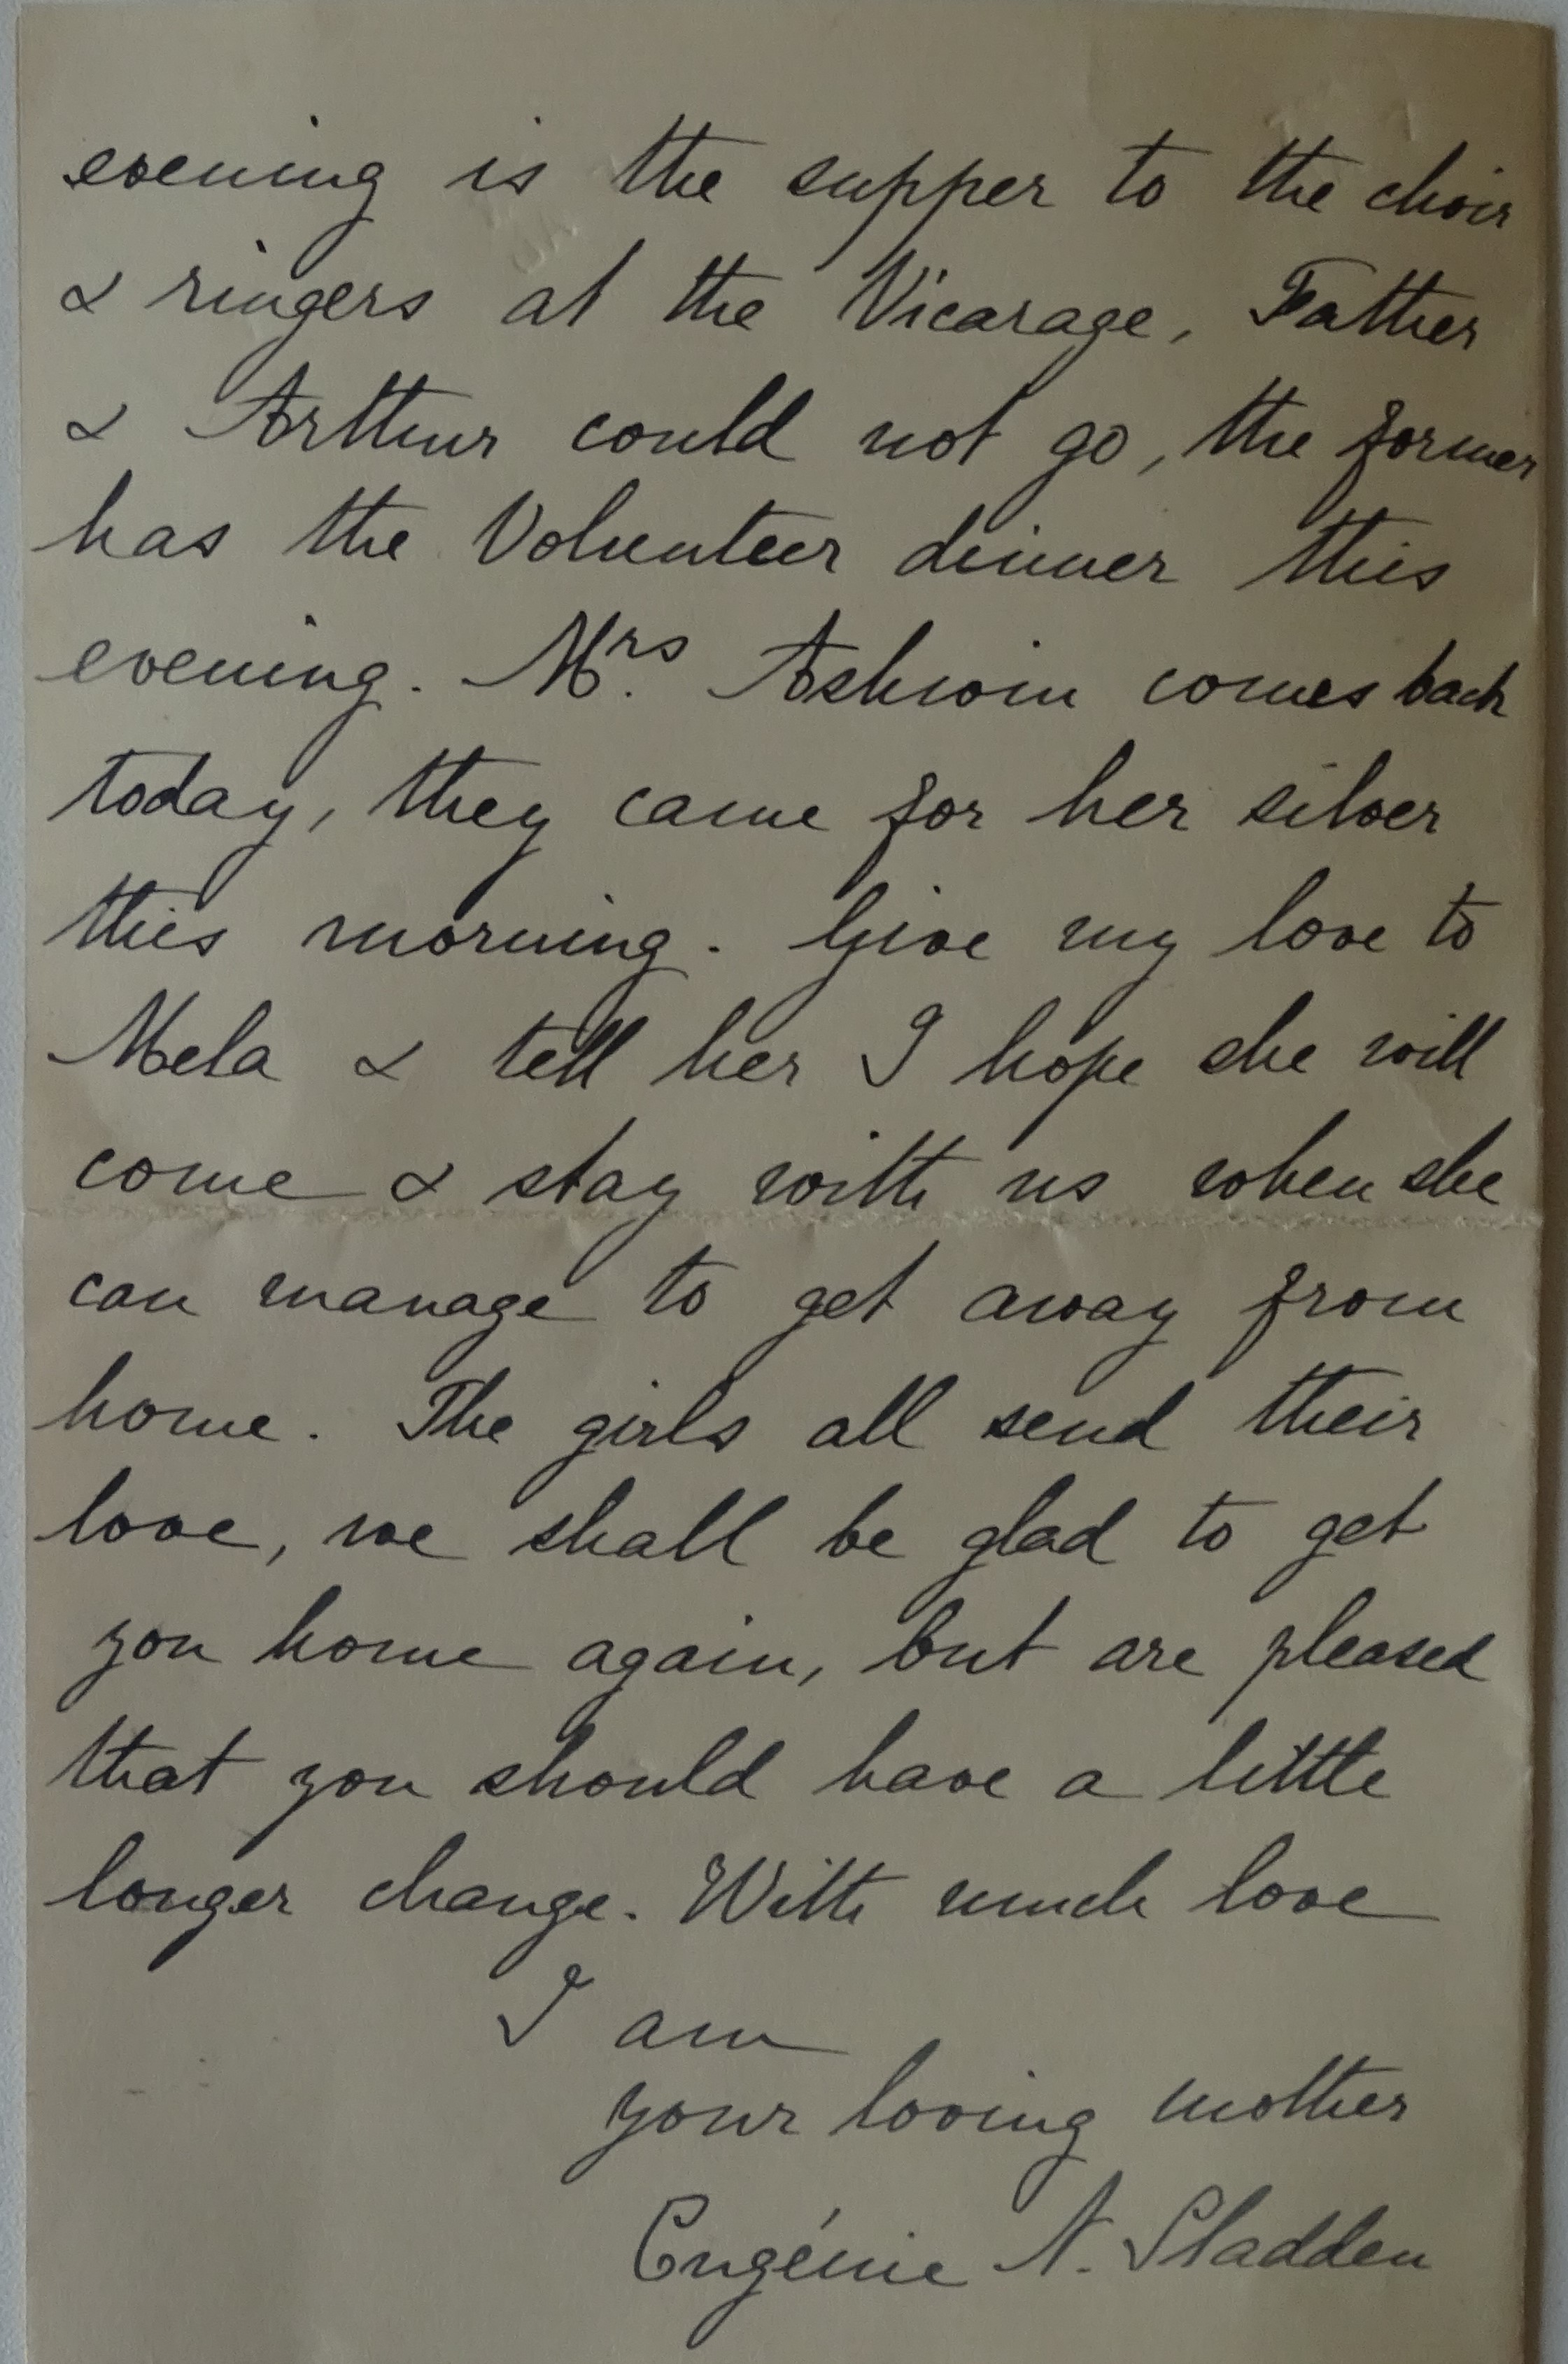 evening is the supper to the choir
& ringers at the Vicarage, Father
& Arthur could not go, the former
has the Volunteer dinner this
evening. Mrs. Ashwin comes back
today, they came for her silver
this morning. Give my love to
Mela & tell her I hope she will
come & stay with us when she
can manage to get away from
home. The girls all send their
love, we shall be glad to get
you home again, but are pleased
that you should have a little
longer change. With much love
I am
your loving mother
Eugénie N. Sladden